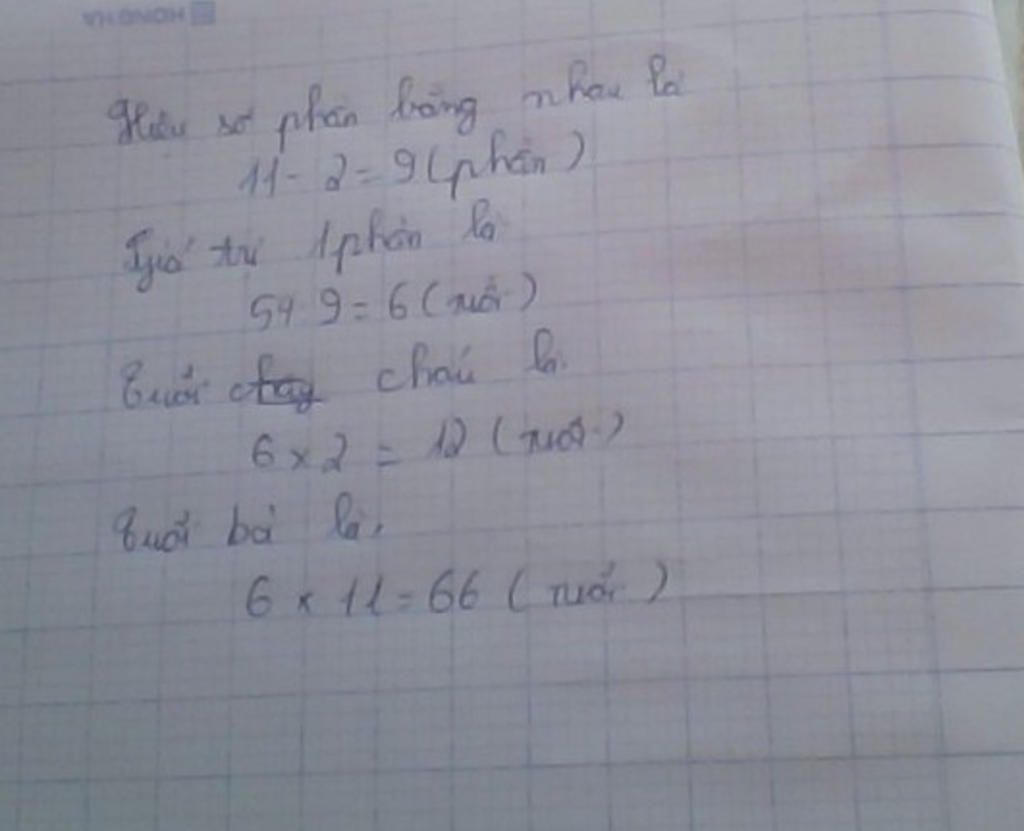 HONG HA
Hiệu số phần bằng nhau là
11 - 2 = 9 (phần)
Giá trị 1 phần là
54 : 9 = 6 (tuổi)
Tuổi cháu là.
6 x 2 = 12 (tuổi)
Tuổi bà là.
6 x 11 = 66 (tuổi)